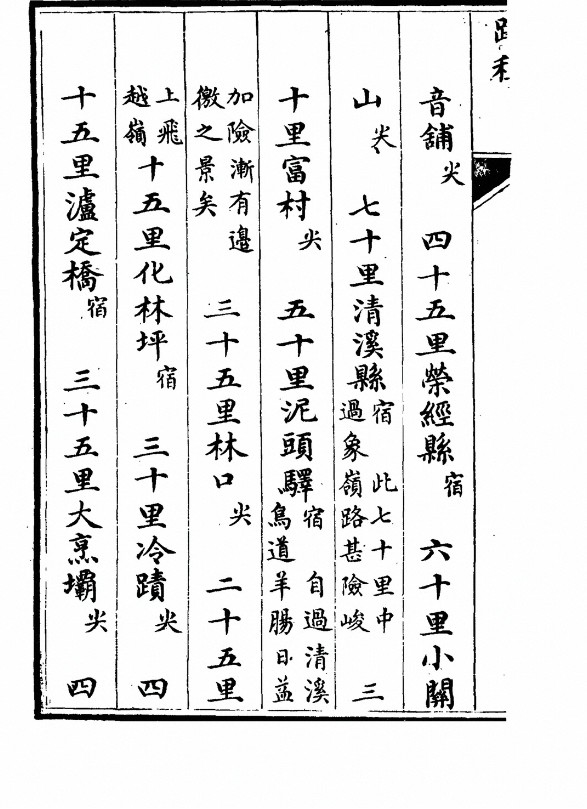 音舖尖 四十五里榮經縣宿 六十里小關
山尖 七十里清溪縣宿 此七十里中過象嶺路甚險峻 三
十里富村尖 五十里泥頭驛宿 自過清溪鳥道羊腸日益
加險漸有邊徼之景矣 三十五里林口尖 二十五里
上飛越嶺十五里化林坪宿 三十里冷蹟尖 四
十五里瀘定橋宿 三十五里大烹壩尖 四